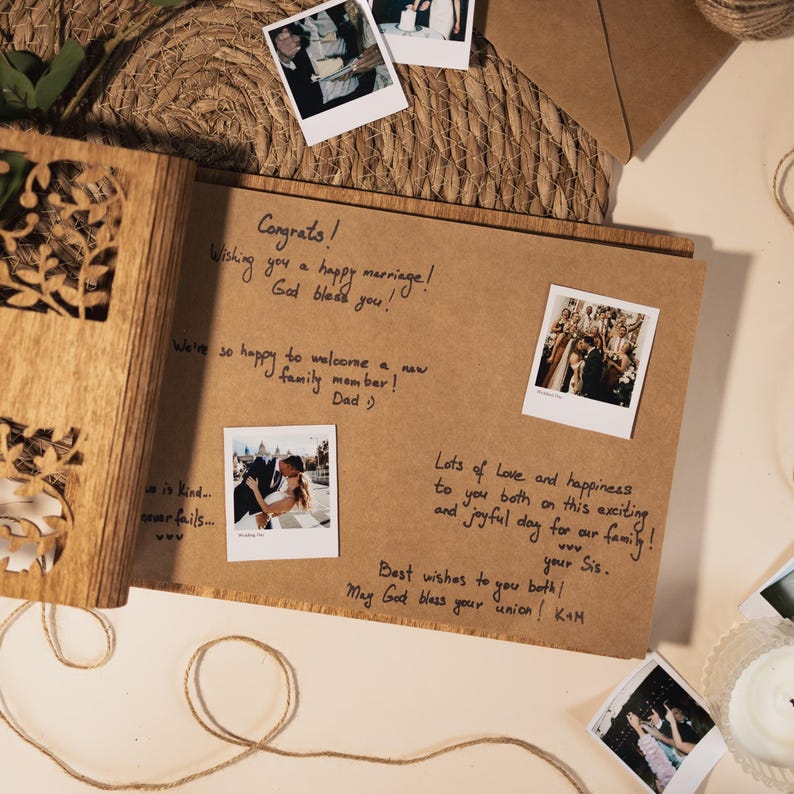 Congrats!
Wishing you a happy marriage!
God bless you!
We're so happy to welcome a new
family member!
Dad :)
Wedding Day
Wedding Day
is kind...
never fails...
Lots of Love and happiness
to you both on this exciting
and joyful day for our family!
your Sis.
Best wishes to you both!
May God bless your union! K+M